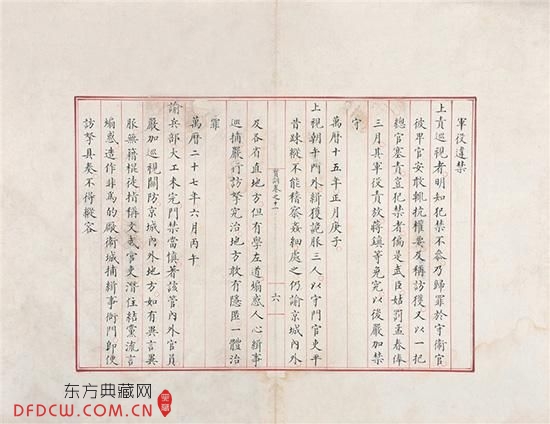 軍役違禁
上責巡視者明知犯禁不參乃歸罪於守衛官
彼畢官安敢輒抗權要及稱訪獲又以一把
總官塞責豈犯禁者徧是武臣姑罰孟春俸
三月其軍役責放蔣鎮等免究以後嚴加禁
守
萬曆十五年正月庚子
上視朝午門外緝獲詭服三人以守門官吏平
昔踈縱不能稽察姦細處之仍諭京城內外
寶訓卷之十一
六
及各省直地方但有學左道煽惑人心緝事
巡捕嚴行訪拏究治地方敢有隱匿一體治
罪
萬曆二十七年六月丙午
諭兵部大工未完門禁當慎著該管內外官員
嚴加巡視關防京城內外地方如有異言異
服無藉棍徒指稱文武官吏潛住結黨流言
煽惑造作非爲的廠衛城捕緝事衙門即便
訪拏具奏不得縱容
东方典藏网
DFDCW.COM.CN